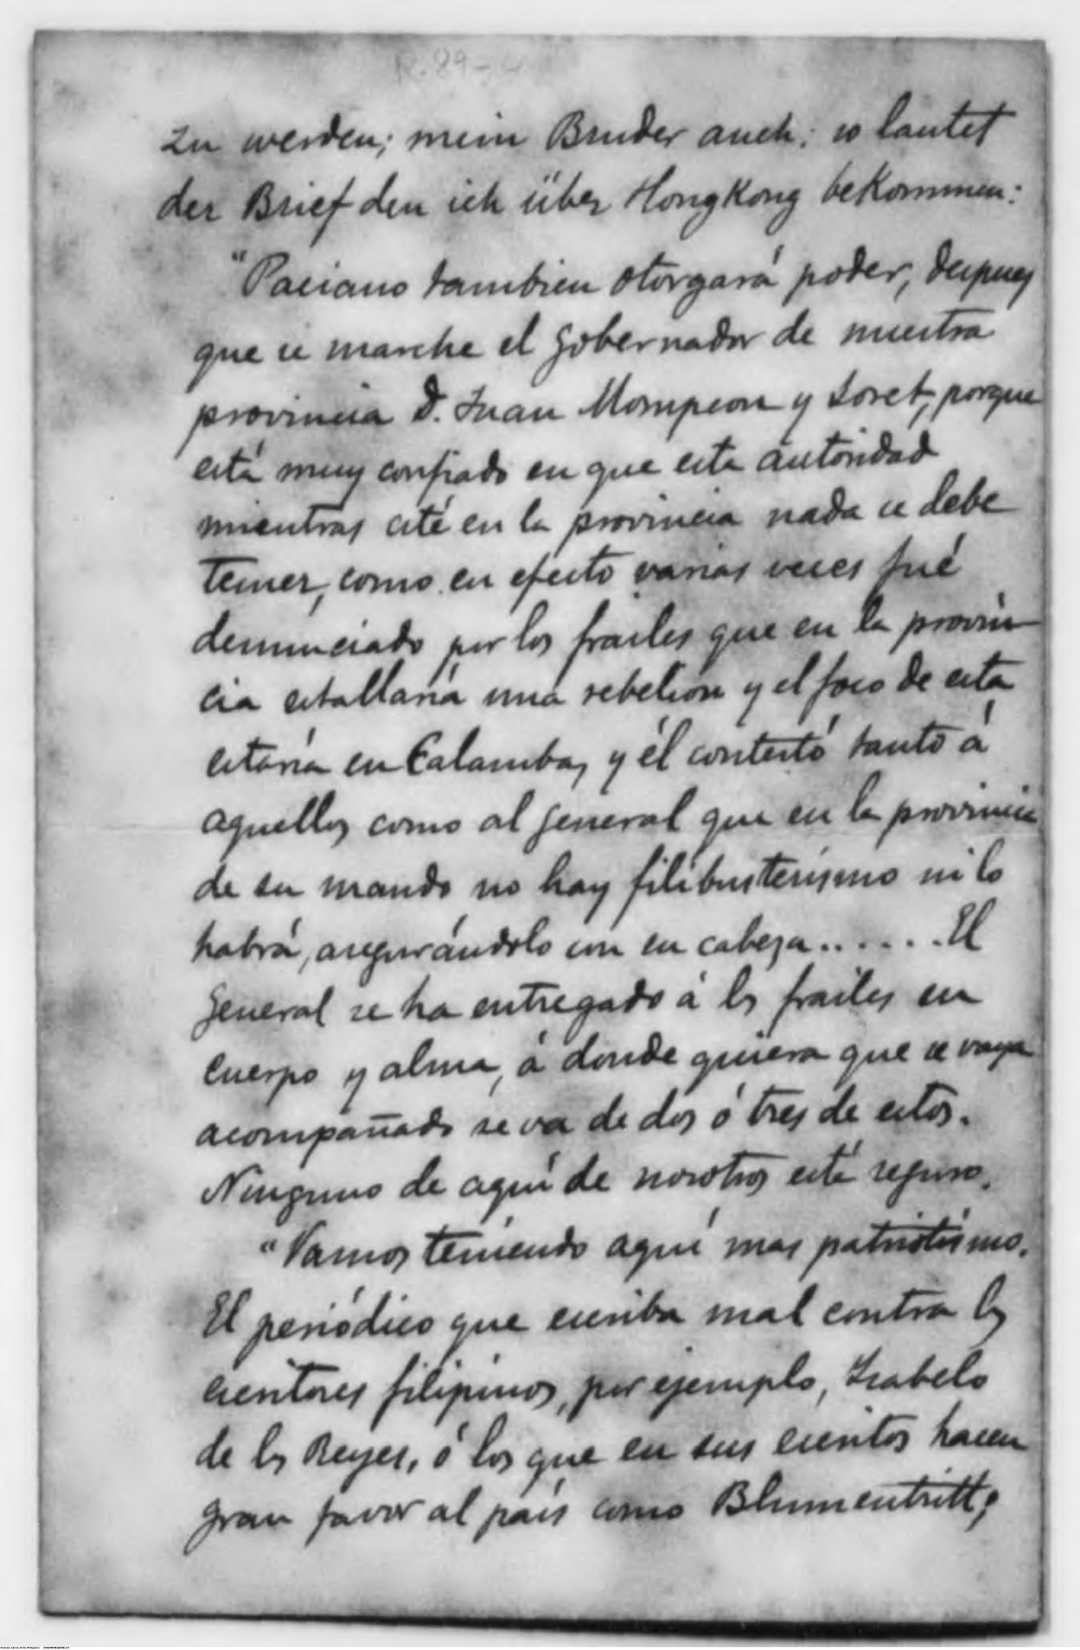 R.89-4
zu werden; mein Bruder auch; so lautet
der Brief den ich über Hongkong bekommen:
"Paciano tambien otorgará poder, despues
que se marche el Gobernador de nuestra
provincia D. Juan Mompeon y Loret, porque
está muy confiado en que esta autoridad
mientras esté en la provincia nada se debe
temer, como en efecto varias veces fué
denunciado por los frailes que en la provin
cia estallaría una rebelion y el foco de esta
estaría en Calamba, y él contestó tanto á
aquellos como al general que en la provincia
de su mando no hay filibusterismo ni lo
habrá, asegurándolo con su cabeza......El
General se ha entregado á los frailes en
cuerpo y alma, á donde quiera que se vaya
acompañado se va de dos ó tres de estos.
Ninguno de aquí de nosotros está seguro.
"Vamos teniendo aquí mas patriotismo.
El periódico que escriba mal contra los
escritores filipinos, por ejemplo, Isabelo
de los Reyes, ó los que en sus escritos hacen
gran favor al país como Blumentritt,